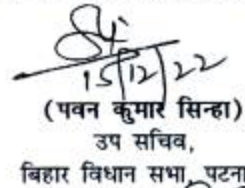 15/12/22
(पवन कुमार सिन्हा)
उप सचिव,
बिहार विधान सभा, पटना